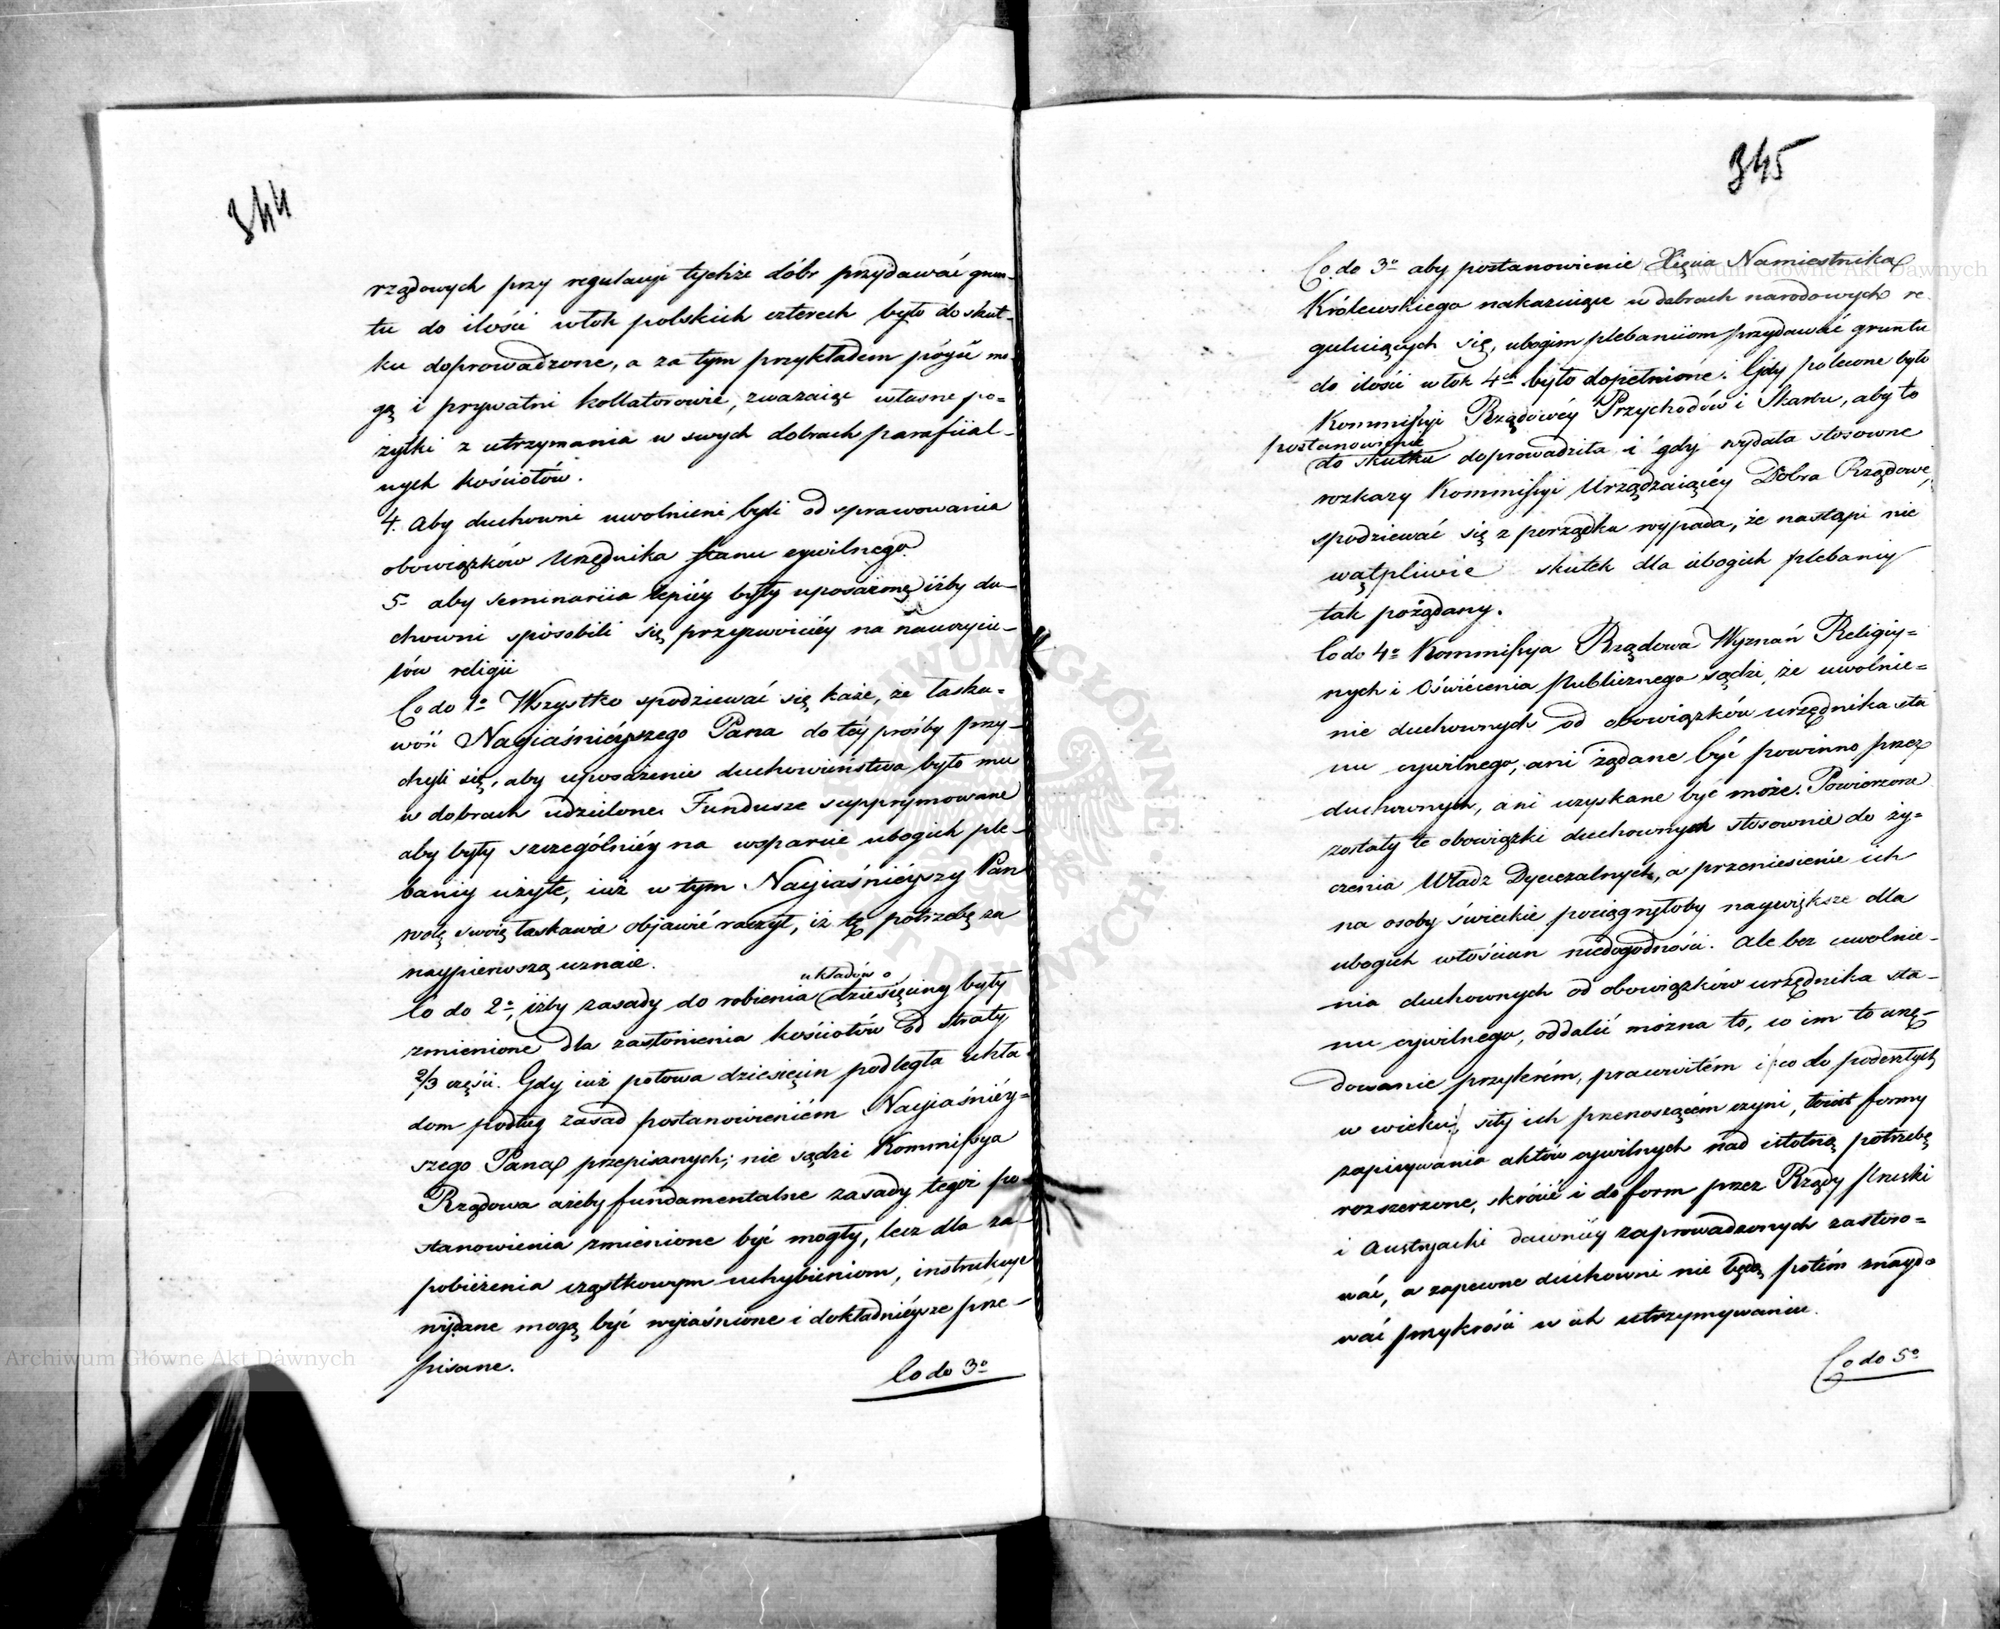 344
rządowych przy regulacyi tychże dóbr przydawać grun-
tu do ilości włok polskich czterech było do skut-
ku doprowadzone, a za tym przykładem póyść mo-
gą i prywatni kollatorowie, zważaiąc własne po-
żytki z utrzymania w swych dobrach parafiial-
nych kościołów.
4. Aby duchowni uwolnieni byli od sprawowania
obowiązków Urzędnika stanu cywilnego.
5- aby seminariia lepiéy były uposażone, iżby du-
chowni sposobili się przyzwoiciéy na nauczycie-
lów religii
Co do 1º Wszystko spodziewać się każe, że łaska-
wość Nayiaśniéyszego Pana do téy prośby przy-
chyli się, aby uposażenie duchowieństwa było mu
w dobrach udzielone. Fundusze supprymowane
aby były szczególniéy na wsparcie ubogich ple-
baniy użyte, iuż w tym Nayiaśniéyszy Pan
wolę swoią łaskawie objawić raczył, iż tę potrzebę za
naypierwszą uznaie.
układów o
Co do 2º, iżby zasady do robienia dziesięciny były
zmienione dla zasłonienia kościołów od straty
2/3 części. Gdy iuż połowa dziesięcin podległa ukła-
dom podług zasad postanowieniém Nayiaśniéy-
szego Pana przepisanych; nie sądzi Kommissya
Rządowa ażeby fundamentalne zasady tegoż po-
stanowienia zmienione być mogły, lecz dla za-
pobieżenia cząstkowym uchybieniom, instrukcye
wydane mogą być wyiaśnione i dokładniéysze prze-
pisane.
Co do 3º
345
Co do 3º aby postanowienie Xięcia Namiestnika
Królewskiego nakazuiące w dobrach narodowych re-
guluiących się, ubogim plebaniiom przydawać gruntu
do ilości włok 4ch było dopełnione. Gdy polecone było
Kommissyi Rządowéy Przychodów i Skarbu, aby to
postanowienie
do skutku doprowadziła i gdy wydała stosowne
rozkazy Kommissyi Urządzaiącéy Dobra Rządowe,
spodziewać się z porządku wypada, że nastąpi nie
wątpliwie skutek dla ubogich plebaniy
tak pożądany.
Co do 4º Kommissya Rządowa Wyznań Religiy-
nych i Oświecenia Publicznego sądzi, że uwolnie-
nie duchownych od obowiązków urzędnika sta
nu cywilnego, ani żądane być powinno przez
duchownych, ani uzyskane być może. Powierzone
zostały te obowiązki duchownych stosownie do ży-
czenia Władz Dyecezalnych, a przeniesienie ich
na osoby świeckie pociągnęłoby naywiększe dla
ubogich włościan niedogodności. Ale bez uwolnie-
nia duchownych od obowiązków urzędnika sta-
nu cywilnego, oddalić można to, co im to urzę-
dowanie przykrém, pracowitém i co do podeszłych
w wieku siły ich przenoszącém czyni, formy
zapisywania aktów cywilnych nad istotną potrzebę
rozszerzone, skrócić i do form przez Rządy Pruski
i Austryacki dawniéy zaprowadzonych zastoso-
wać, a zapewne duchowni nie będą potém znaydo-
wać przykrości w ich utrzymywaniu.
Co do 5º
Archiwum Główne Akt Dawnych
Archiwum Główne Akt Dawnych